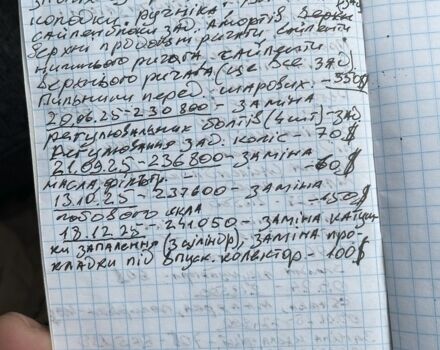 колодки, ручніка.
сайлентблоки зад. Амортів. Верхи
Верхні продольні ричаги, сайленти
нижнього ричага, сайленти
верхнього ричага (це все зад)
Пильники перед. шарових. - 550$
20.06.25 - 230 800 - ЗАМІНА
регулювальних болтів (4шт) - зад
Регулювання зад. коліс - 70$
01.09.25 - 236800 - ЗАМІНА
масла, фільтр. - 60$
13.10.25 - 237600 - ЗАМІНА
лобового скла - 150$
18.12.25 - 241050 - ЗАМІНА катуш
ки запалення (3 циліндр), ЗАМІНА про-
кладки під впуск. колектор - 100$